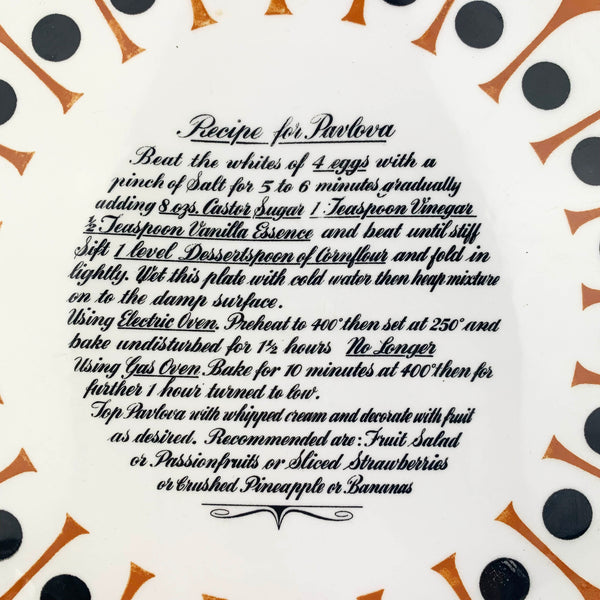 Recipe for Pavlova
Beat the whites of 4 eggs with a
pinch of Salt for 5 to 6 minutes, gradually
adding 8 ozs. Castor Sugar 1 Teaspoon Vinegar
½ Teaspoon Vanilla Essence and beat until stiff
Sift 1 level Dessertspoon of Cornflour and fold in
lightly. Wet this plate with cold water then heap mixture
on to the damp surface.
Using Electric Oven. Preheat to 400° then set at 250° and
bake undisturbed for 1½ hours No Longer
Using Gas Oven. Bake for 10 minutes at 400° then for
further 1 hour turned to low.
Top Pavlova with whipped cream and decorate with fruit
as desired. Recommended are: Fruit Salad
or Passionfruits or Sliced Strawberries
or Crushed Pineapple or Bananas